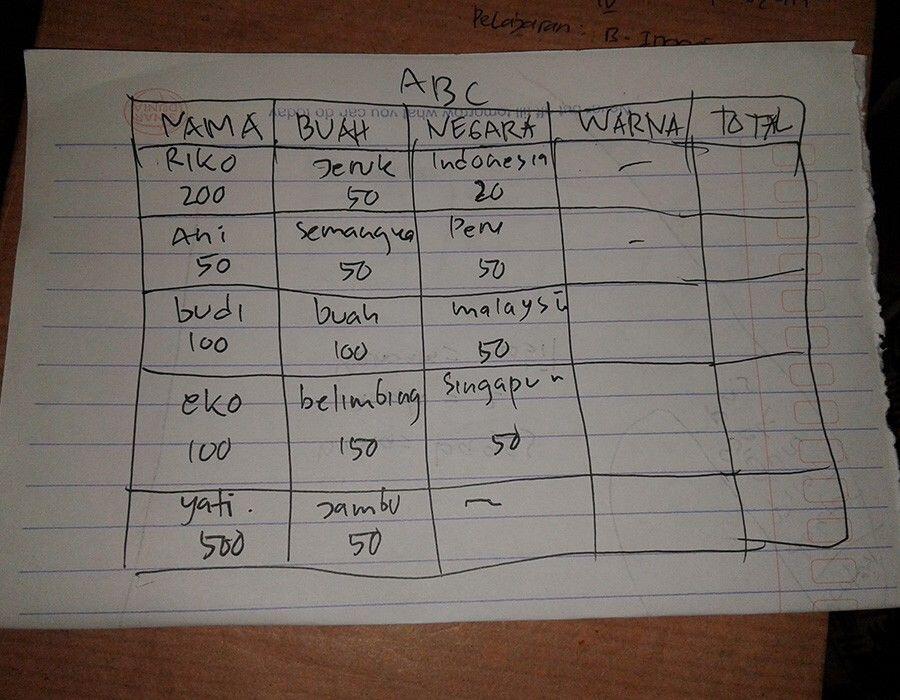 Pelabaran: B-
ABC
NAMA BUAH NEGARA WARNA TOTAL
RIKO Jeruk Indonesia -
200 50 20
Ani Semangka Peru -
50 50 50
budi buah malaysi
100 100 50
eko belimbing Singapur
100 150 50
yati. Jambu -
500 50